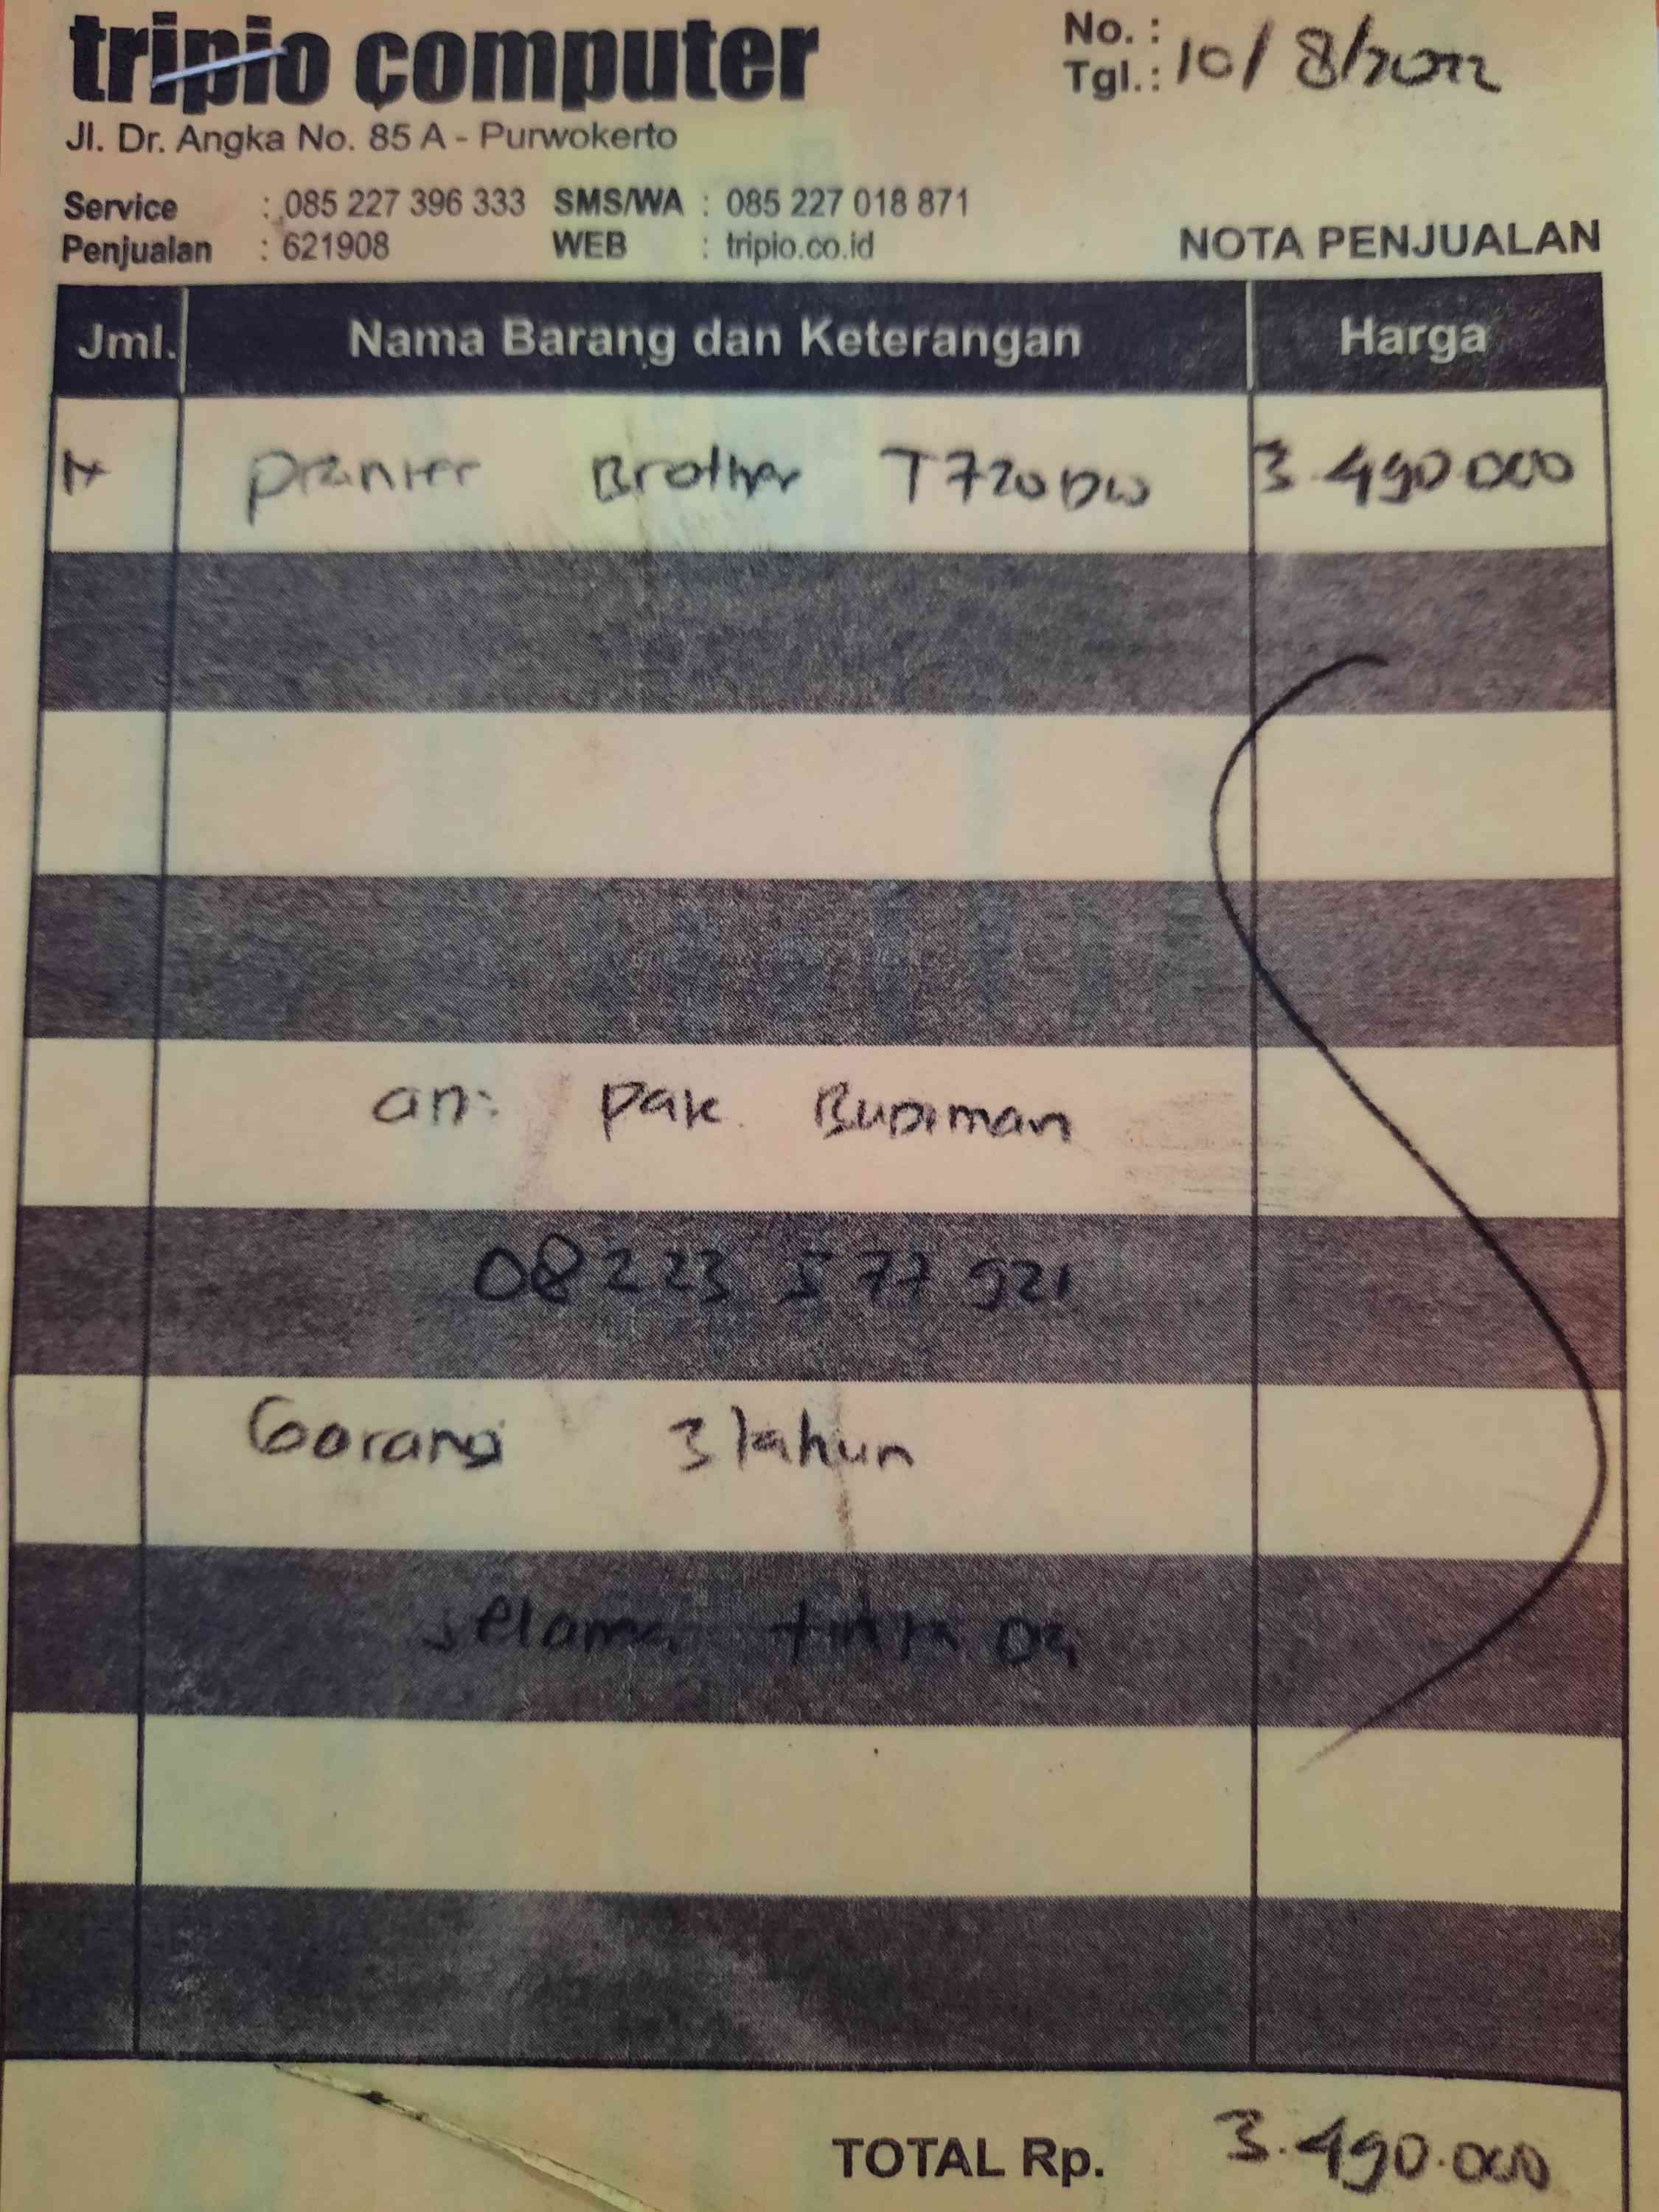 tripio computer
No. :
Tgl. : 10/8/2022
Jl. Dr. Angka No. 85 A - Purwokerto
Service : 085 227 396 333 SMS/WA : 085 227 018 871
Penjualan : 621908 WEB : tripio.co.id
NOTA PENJUALAN
Jml. Nama Barang dan Keterangan Harga
Brother T720DW 3.490.000
an: Pak Budiman
Garansi 3 tahun
selama tinta
TOTAL Rp. 3.490.000